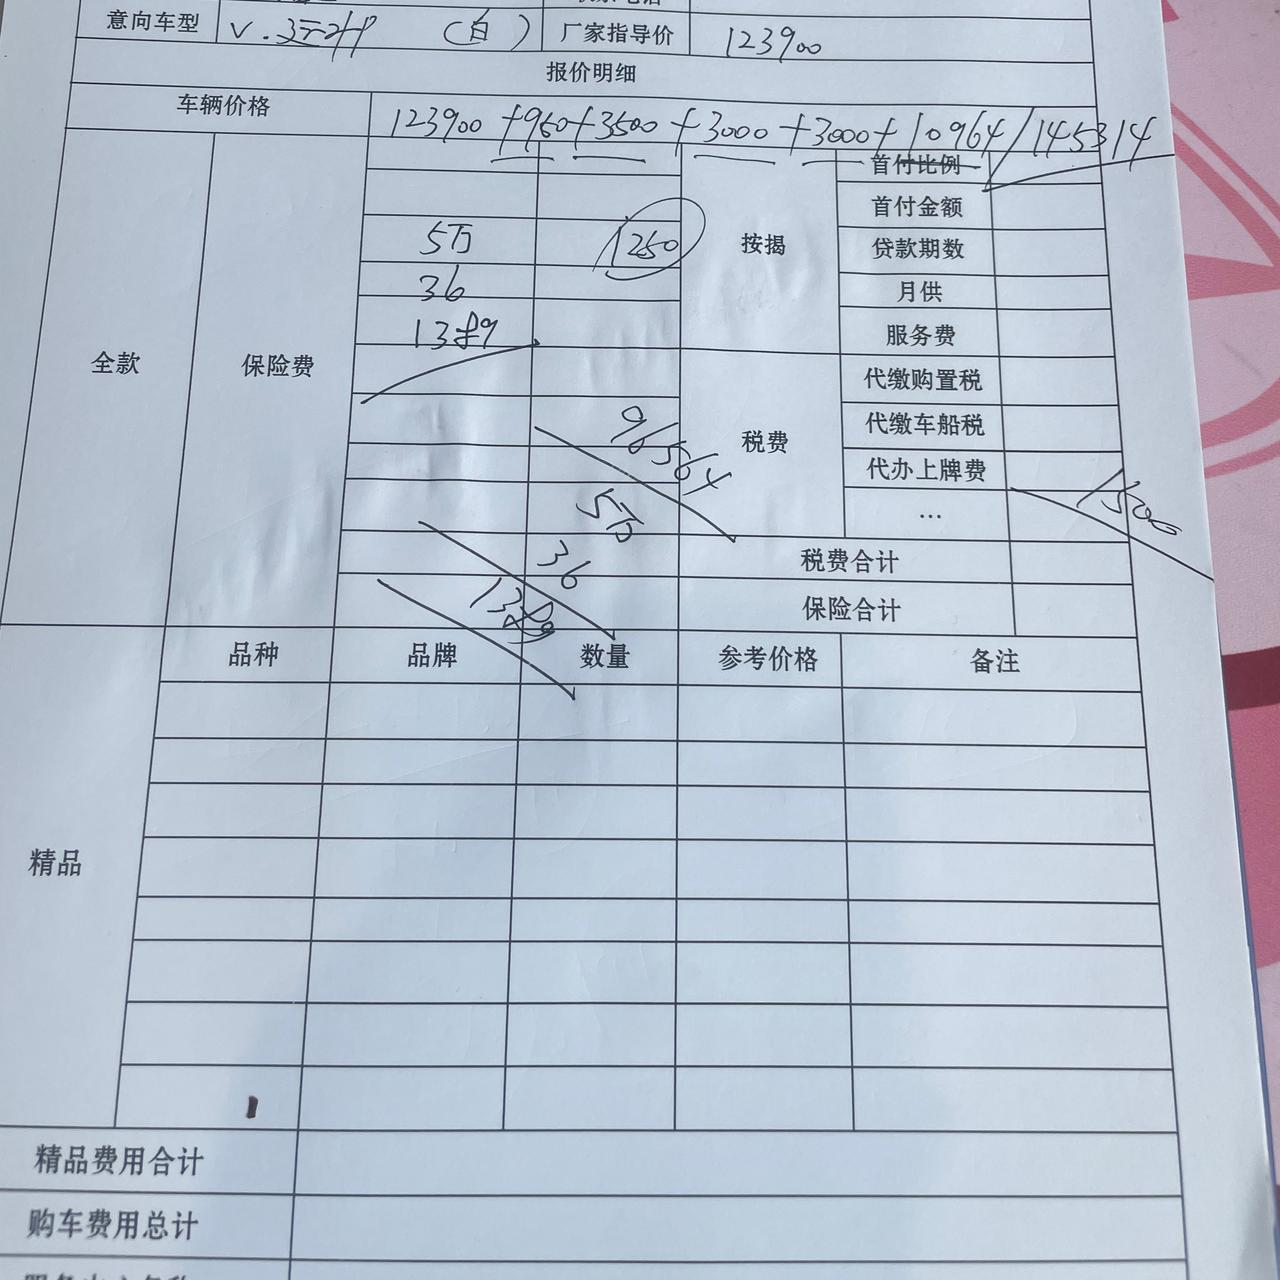 意向车型 （白） 厂家指导价 123900
报价明细
车辆价格 123900+950+3500+3000+3000+10964/145314
首付比例
首付金额
5万 1250 按揭 贷款期数
36 月供
1389 服务费
全款 保险费 代缴购置税
96564 税费 代缴车船税
代办上牌费
5万 … 1500
36 税费合计
1389 保险合计
品种 品牌 数量 参考价格 备注
精品
精品费用合计
购车费用总计